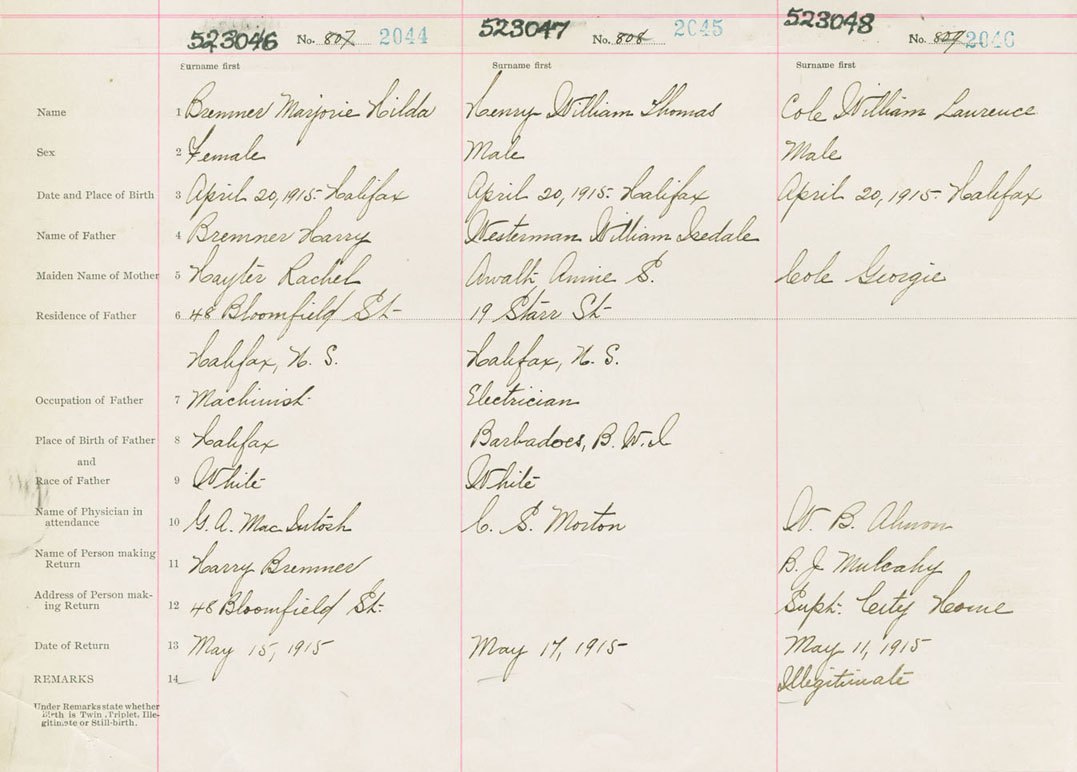 523046 No. 807 2044 523047 No. 808 2045 523048 No. 809 2046
Surname first Surname first Surname first
Name 1 Bremner Marjorie Hilda Henry William Thomas Cole William Laurence
Sex 2 Female Male Male
Date and Place of Birth 3 April 20, 1915 - Halifax April 20, 1915 - Halifax April 20, 1915 - Halifax
Name of Father 4 Bremner Harry Westerman William Isedale
Maiden Name of Mother 5 Hayter Rachel Awalt Annie S. Cole Georgie
Residence of Father 6 48 Bloomfield St 19 Starr St
Halifax, N. S. Halifax, N. S.
Occupation of Father 7 Machinist Electrician
Place of Birth of Father 8 Halifax Barbadoes, B.W.I
and
Race of Father 9 White White
Name of Physician in
attendance 10 G. A. MacIntosh C. S. Morton W. B. Almon
Name of Person making
Return 11 Harry Bremner B. J. Mulcahy
Address of Person mak-
ing Return 12 48 Bloomfield St. Supt. City Home
Date of Return 13 May 15, 1915 May 17, 1915 May 11, 1915
REMARKS 14 Illegitimate
Under Remarks state whether
Birth is Twin, Triplet, Ille-
gitimate or Still-birth.